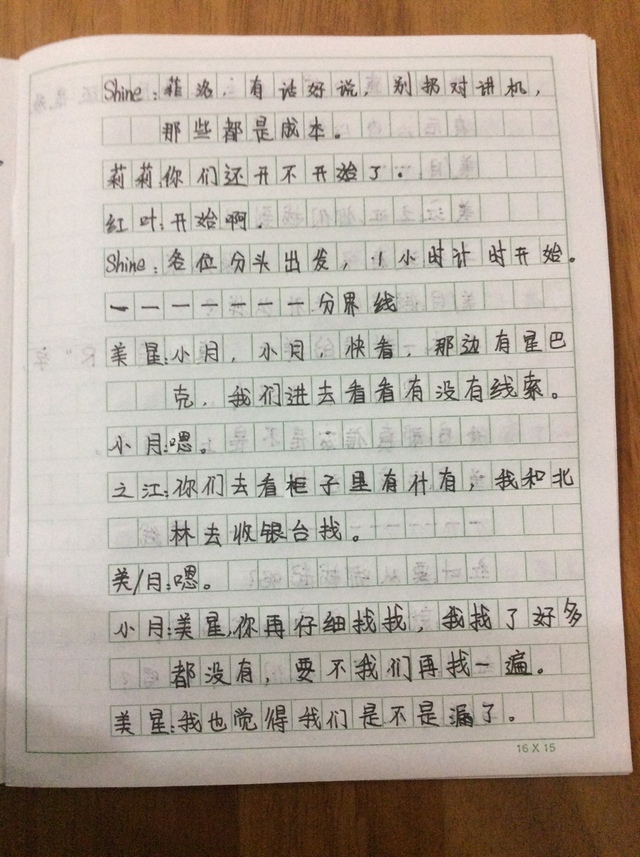 Shine:菲洛,有话好说,别扔对讲机,
那些都是成本。
莉莉:你们还开不开始了.
红叶:开始啊.
Shine:各位分头出发,1小时计时开始。
一一一一一一一分界线
美星:小月,小月,快看,那边有星巴
克,我们进去看看有没有线索。
小月:嗯。
之江:你们去看柜子里有什有,我和北
林去收银台找。
美/月:嗯。
小月:美星,你再仔细找找,我找了好多
都没有,要不我们再找一遍。
美星:我也觉得我们是不是漏了。
16X15